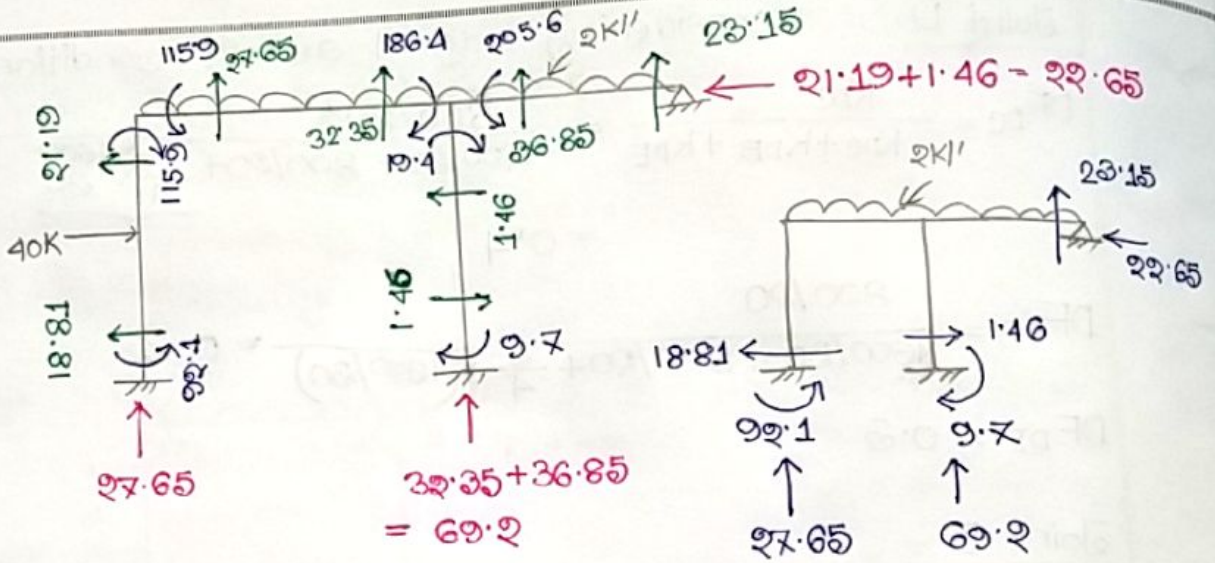 115.9
27.65
186.4
205.6
2K/'
23.15
21.19+1.46 = 22.65
21.19
115.9
32.35
19.4
36.85
1.46
40K
18.81
1.46
9.7
27.65
32.35+36.85
= 69.2
2K/'
23.15
22.65
18.81
1.46
92.1
9.7
27.65
69.2